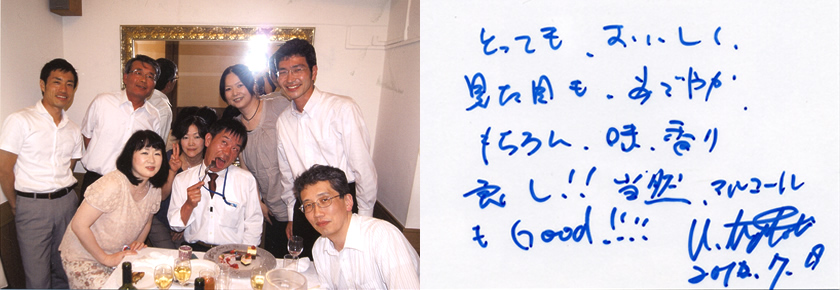 とっても、おいしく、
見た目も、あでやか、
もちろん、味、香り
良し!! 当然、アルコール
もGood!!!!
7.